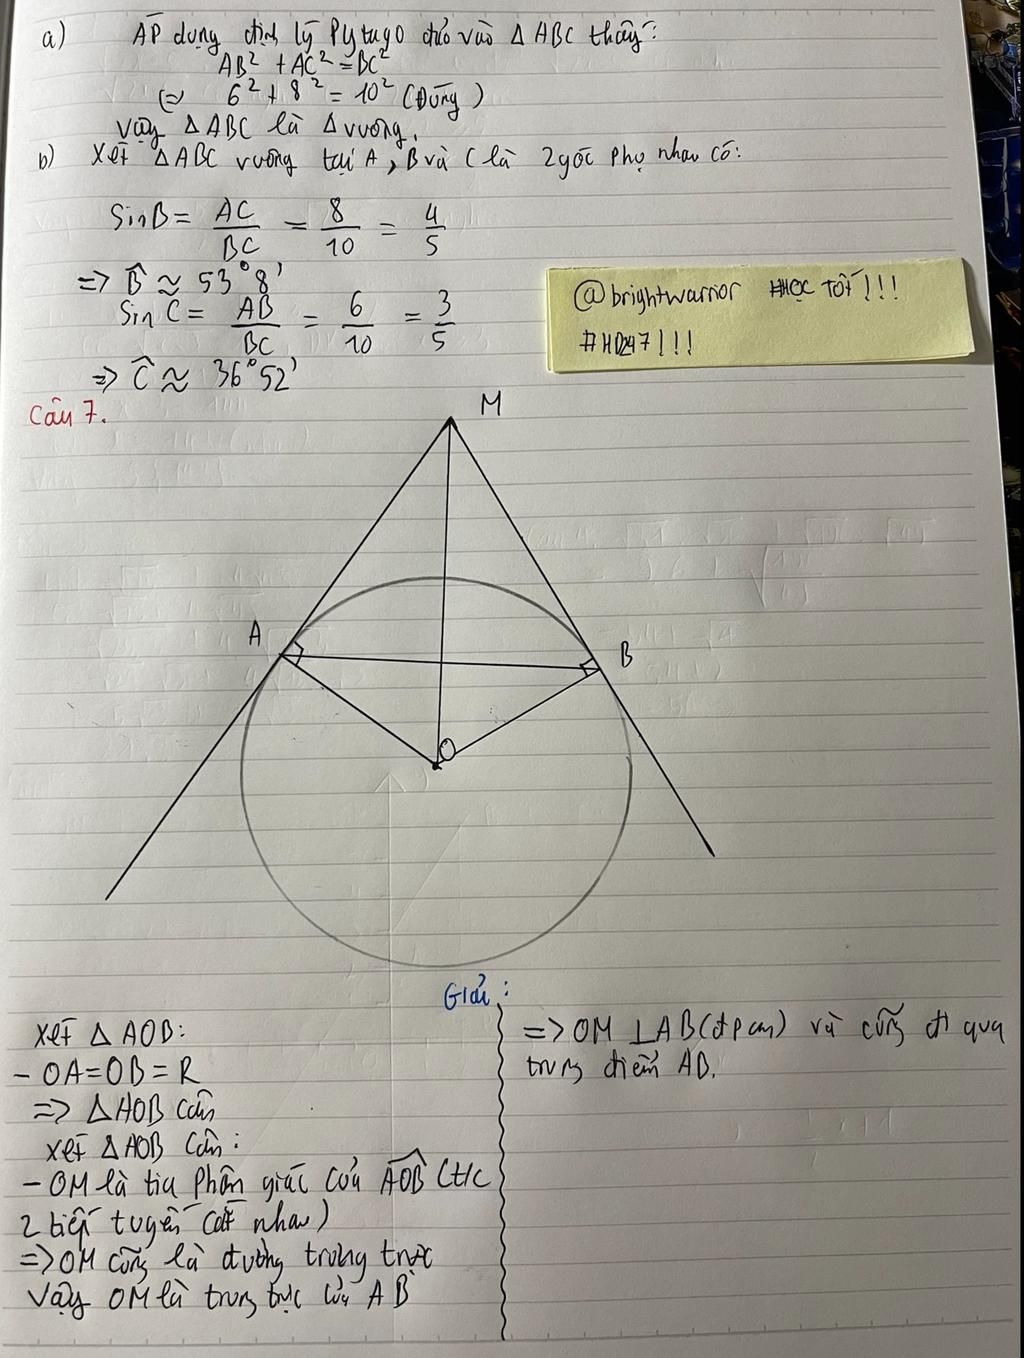 a) ÁP dụng định lý Pytago đảo vào Δ ABC thấy:
AB² + AC² = BC²
(=) 6² + 8² = 10² (Đúng)
vậy Δ ABC là Δ vuông.
b) xét ΔABC vuông tại A, B và C là 2 góc phụ nhau có:
SinB = AC/BC = 8/10 = 4/5
=> B̂ ≈ 53°8'
Sin C = AB/BC = 6/10 = 3/5
=> Ĉ ≈ 36°52'
@brightwarrior #HỌC TỐT!!!
#HD247!!!
Câu 7.
M
A
B
O
Giải:
xét Δ AOB:
- OA=OB=R
=> ΔAOB cân
xét ΔAOB cân:
- OM là tia phân giác của AOB (t/c
2 tiếp tuyến cắt nhau)
=> OM cũng là đường trung trực
vậy OM là trung trực của AB
=> OM ⊥ AB (đpcm) và cũng đi qua
trung điểm AB.